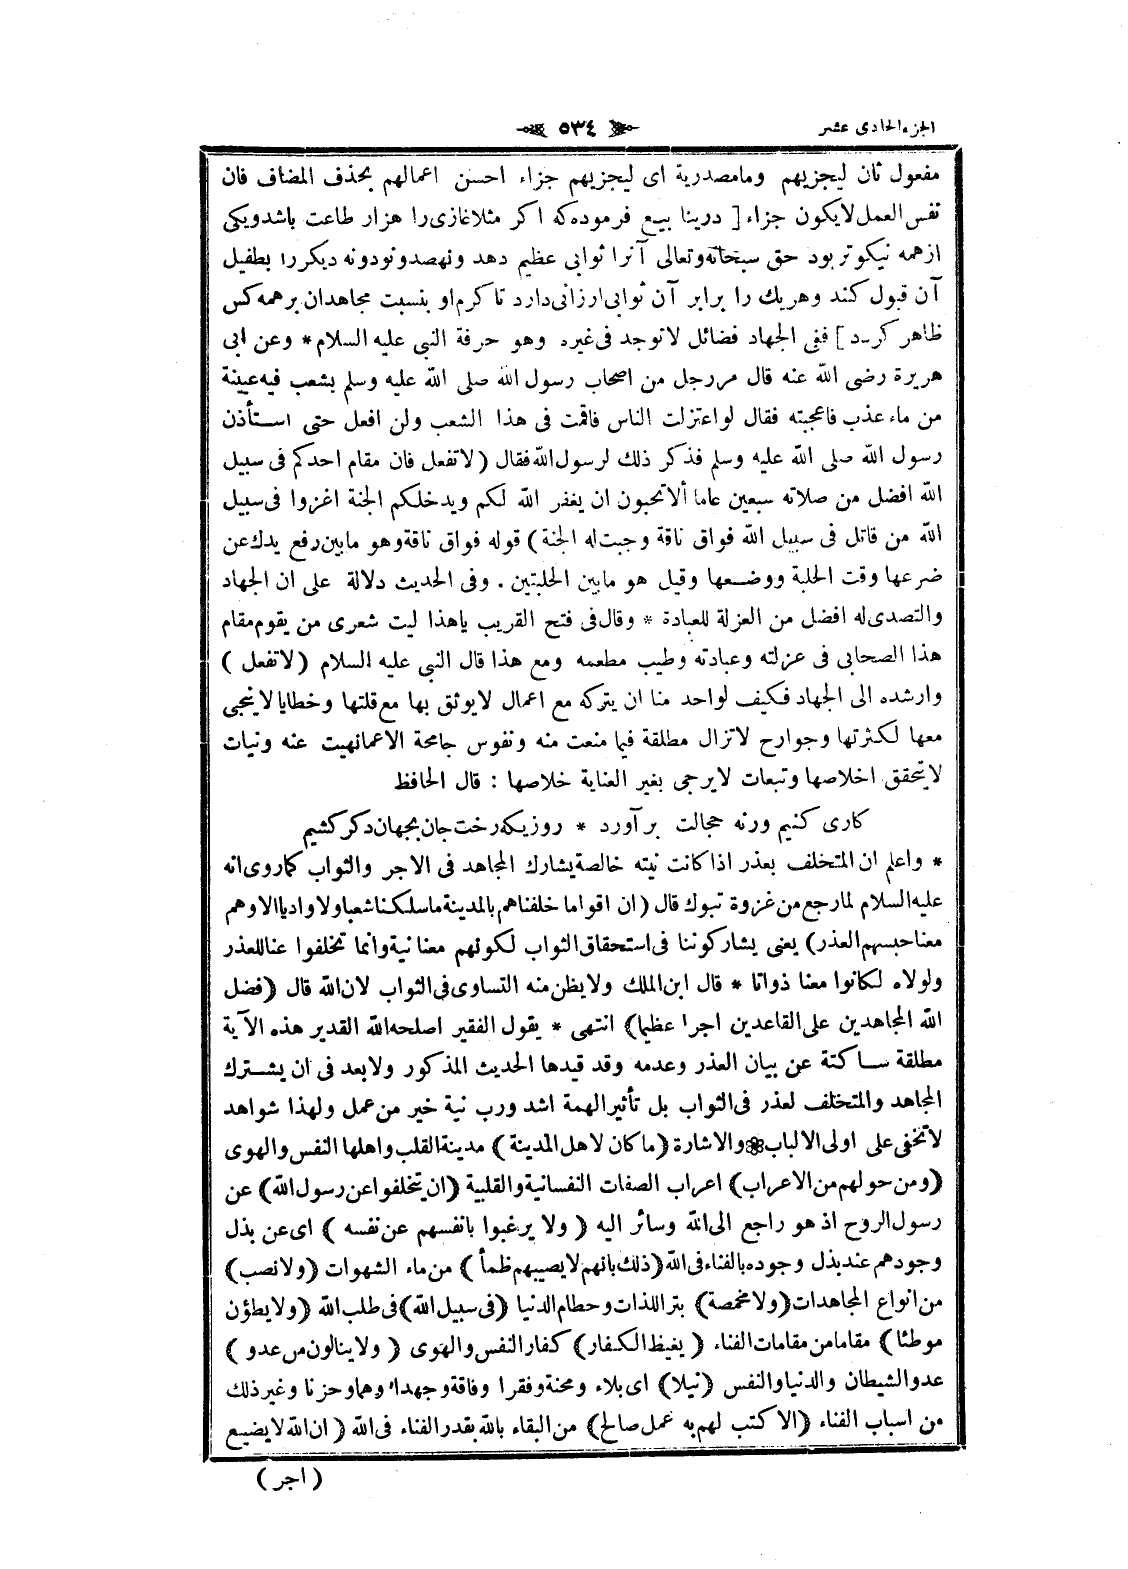 الجزء الحادى عشر
٥٣٤
مفعول ثان ليجزيهم ومامصدرية اى ليجزيهم جزاء احسن اعمالهم بحذف المضاف فان
نفس العمل لايكون جزاء [ درينا بيع فرموده كه اكر مثلا غازى را هزار طاعت باشد ويكى
ازهمه نيكوتر بود حق سبحانه وتعالى آنرا ثوابى عظيم دهد ونهصد ونودونه ديكررا بطفيل
آن قبول كند وهريك را برابر آن ثوابى ارزانى دارد تا كرم او بنسبت مجاهدان برهمه كس
ظاهر كردد ] ففى الجهاد فضائل لاتوجد فى غيره وهو حرفة النبى عليه السلام * وعن ابى
هريرة رضى الله عنه قال مررجل من اصحاب رسول الله صلى الله عليه وسلم بشعب فيه عيينة
من ماء عذب فاعجبته فقال لواعتزلت الناس فاقمت فى هذا الشعب ولن افعل حتى استأذن
رسول الله صلى الله عليه وسلم فذكر ذلك لرسول الله فقال ( لاتفعل فان مقام احدكم فى سبيل
الله افضل من صلاته سبعين عاما ألاتحبون ان يغفر الله لكم ويدخلكم الجنة اغزوا فى سبيل
الله من قاتل فى سبيل الله فواق ناقة وجبت له الجنة ) قوله فواق ناقة وهو مابين رفع يدك عن
ضرعها وقت الحلبة ووضعها وقيل هو مابين الحلبتين . وفى الحديث دلالة على ان الجهاد
والتصدى له افضل من العزلة للعبادة * وقال فى فتح القريب ياهذا ليت شعرى من يقوم مقام
هذا الصحابى فى عزلته وعبادته وطيب مطعمه ومع هذا قال النبى عليه السلام ( لاتفعل )
وارشده الى الجهاد فكيف لواحد منا ان يتركه مع اعمال لايوثق بها مع قلتها وخطايا لاينجى
معها لكثرتها وجوارح لاتزال مطلقة فيما منعت منه ونفوس جامحة الاعمانهيت عنه ونيات
لايتحقق اخلاصها وتبعات لايرجى بغير العناية خلاصها : قال الحافظ
كارى كنيم ورنه خجالت برآورد * روزيكه رخت جان بجهان دكر كشيم
* واعلم ان المتخلف بعذر اذا كانت نيته خالصة يشارك المجاهد فى الاجر والثواب كماروى انه
عليه السلام لمارجع من غزوة تبوك قال ( ان اقواما خلفناهم بالمدينة ماسلكنا شعبا ولا واديا الا وهم
معنا حبسهم العذر) يعنى يشاركوننا فى استحقاق الثواب لكونهم معنا نية وانما تخلفوا عنا للعذر
ولولاه لكانوا معنا ذواتا * قال ابن الملك ولايظن منه التساوى فى الثواب لان الله قال (فضل
الله المجاهدين على القاعدين اجرا عظيما) انتهى * يقول الفقير اصلحه الله القدير هذه الآية
مطلقة ساكتة عن بيان العذر وعدمه وقد قيدها الحديث المذكور ولابعد فى ان يشترك
المجاهد والمتخلف لعذر فى الثواب بل تأثير الهمة اشد ورب نية خير من عمل ولهذا شواهد
لاتخفى على اولى الالباب * والاشارة (ما كان لاهل المدينة) مدينة القلب واهلها النفس والهوى
(ومن حولهم من الاعراب) اعراب الصفات النفسانية والقلبية (ان يتخلفوا عن رسول الله) عن
رسول الروح اذ هو راجع الى الله وسائر اليه ( ولا يرغبوا بانفسهم عن نفسه ) اى عن بذل
وجودهم عند بذل وجوده بالفناء فى الله (ذلك بانهم لايصيبهم ظمأ ) من ماء الشهوات (ولا نصب)
من انواع المجاهدات (ولا مخمصة) بترك اللذات وحطام الدنيا (فى سبيل الله) فى طلب الله (ولا يطؤن
موطئا) مقاما من مقامات الفناء ( يغيظ الكفار) كفار النفس والهوى ( ولا ينالون من عدو )
عدو الشيطان والدنيا والنفس (نيلا) اى بلاء ومحنة وفقرا وفاقة وجهدا وهما وحزنا وغير ذلك
من اسباب الفناء (الا كتب لهم به عمل صالح) من البقاء بالله بقدر الفناء فى الله ( ان الله لايضيع
( اجر )